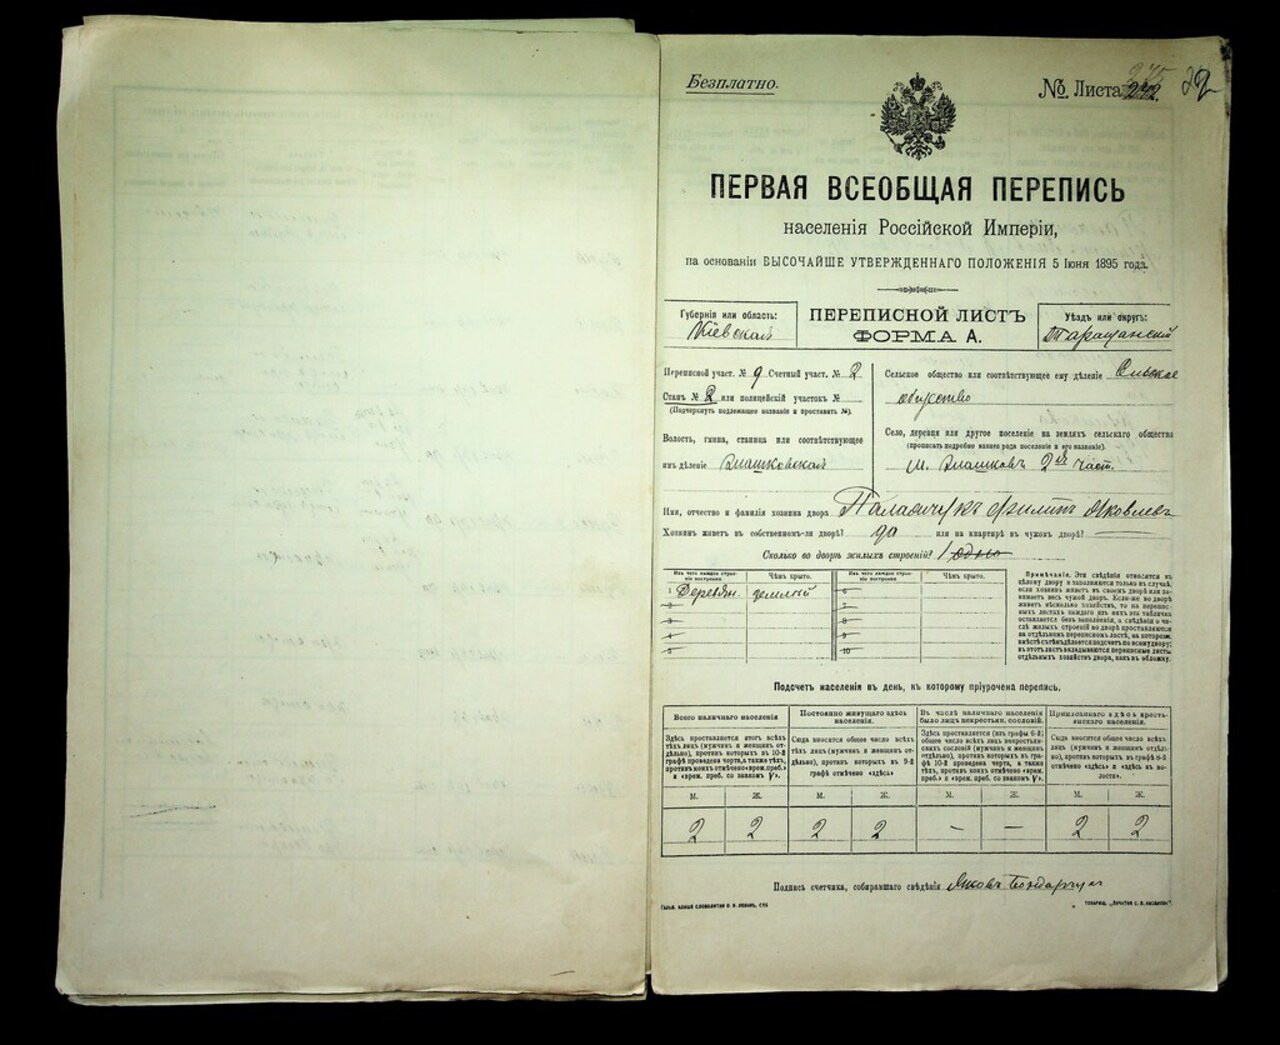 Безплатно.
№ Листа
ПЕРВАЯ ВСЕОБЩАЯ ПЕРЕПИСЬ
населенія Россійской Имперіи,
на основаніи ВЫСОЧАЙШЕ УТВЕРЖДЕННАГО ПОЛОЖЕНІЯ 5 Іюня 1895 года.
Губернія или область:
Кіевская
ПЕРЕПИСНОЙ ЛИСТЪ
ФОРМА А.
Уѣздъ или округъ:
Таращанскій
Переписной участ. № 9 Счетный участ. № 2
Станъ № 2 или полицейскій участокъ №
(Подчеркнуть подлежащее названіе и проставить №).
Волость, гмина, станица или соотвѣтствующее
имъ дѣленіе
Сельское общество или соотвѣтствующее ему дѣленіе Сельское
общество
Село, деревня или другое поселеніе на земляхъ сельскаго общества
(прописать подробно какого рода поселеніе и его названіе).
м. 2я част.
Имя, отчество и фамилія хозяина двора Филипъ Яковлевъ
Хозяинъ живетъ въ собственномъ-ли дворѣ? да или на квартирѣ въ чужомъ дворѣ?
Сколько во дворѣ жилыхъ строеній? 1 одно
Изъ чего каждое строеніе построено
Чѣмъ крыто.
Изъ чего каждое строеніе построено
Чѣмъ крыто.
1 Деревян. землей 6
2 7
3 8
4 9
5 10
Примѣчаніе. Эти свѣдѣнія относятся къ
цѣлому двору и заполняются только въ случаѣ,
если хозяинъ живетъ въ своемъ дворѣ или занимаетъ
весь чужой дворъ. Если-же во дворѣ
живетъ нѣсколько хозяйствъ, то на переписныхъ
листахъ каждаго изъ нихъ эта табличка
оставляется безъ заполненія, а свѣдѣнія о числѣ
жилыхъ строеній во дворѣ проставляются
на отдѣльномъ переписномъ листѣ, на которомъ
вмѣстѣ съ тѣмъ дѣлается подсчетъ по всему двору;
въ этотъ листъ вкладываются переписные листы
отдѣльныхъ хозяйствъ двора, какъ въ обложку.
Подсчетъ населенія въ день, къ которому пріурочена перепись.
Всего наличнаго населенія
Здѣсь проставляется итогъ всѣхъ
тѣхъ лицъ (мужчинъ и женщинъ отдѣльно),
противъ которыхъ въ 10-й
графѣ проведена черта, а также тѣхъ,
противъ коихъ отмѣчено «врем. преб.»
и «врем. преб. со знакомъ V».
Постоянно живущаго здѣсь
населенія.
Сюда вносится общее число всѣхъ
тѣхъ лицъ (мужчинъ и женщинъ отдѣльно),
противъ которыхъ въ 9-й
графѣ отмѣчено «здѣсь»
Въ числѣ наличнаго населенія
было лицъ некрестьян. сословій.
Здѣсь проставляется (изъ графы 6-й)
общее число всѣхъ лицъ некрестьянскихъ
сословій (мужчинъ и женщинъ
отдѣльно), противъ которыхъ въ графѣ
10-й проведена черта, а также
тѣхъ, противъ коихъ отмѣчено «врем.
преб.» и «врем. преб. со знакомъ V».
Приписаннаго здѣсь крестьянскаго
населенія.
Сюда вносится общее число всѣхъ
лицъ (мужчинъ и женщинъ отдѣльно),
противъ которыхъ въ графѣ 8-й
отмѣчено «здѣсь» и «здѣсь въ волости».
М. Ж. М. Ж. М. Ж. М. Ж.
2 2 2 2 — — 2 2
Подпись счетчика, собиравшаго свѣдѣнія Яковъ Бондарчук